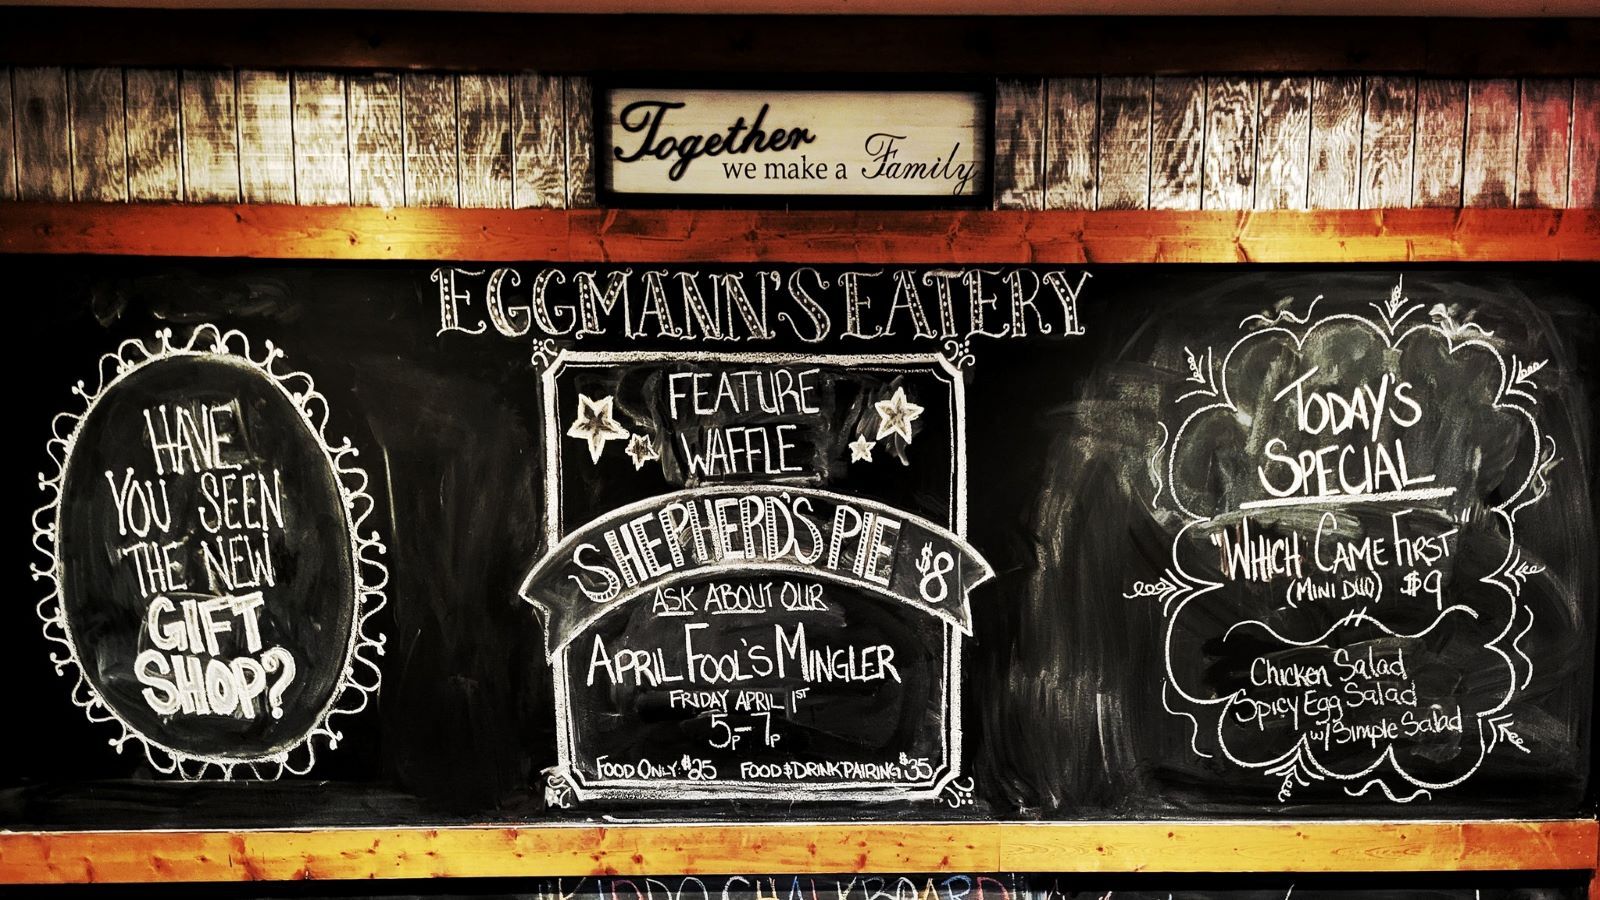 Together
we make a Family
EGGMANN'S EATERY
HAVE
YOU SEEN
THE NEW
GIFT
SHOP?
FEATURE
WAFFLE
SHEPHERD'S PIE $8
ASK ABOUT OUR
APRIL FOOL'S MINGLER
FRIDAY APRIL 1ST
5P-7P
FOOD ONLY: $25 FOOD & DRINK PAIRING $35
TODAY'S
SPECIAL
"WHICH CAME FIRST
(MINI DUO) $9
Chicken Salad
Spicy Egg Salad
w/ Simple Salad
KIDDO CHALKBOARD